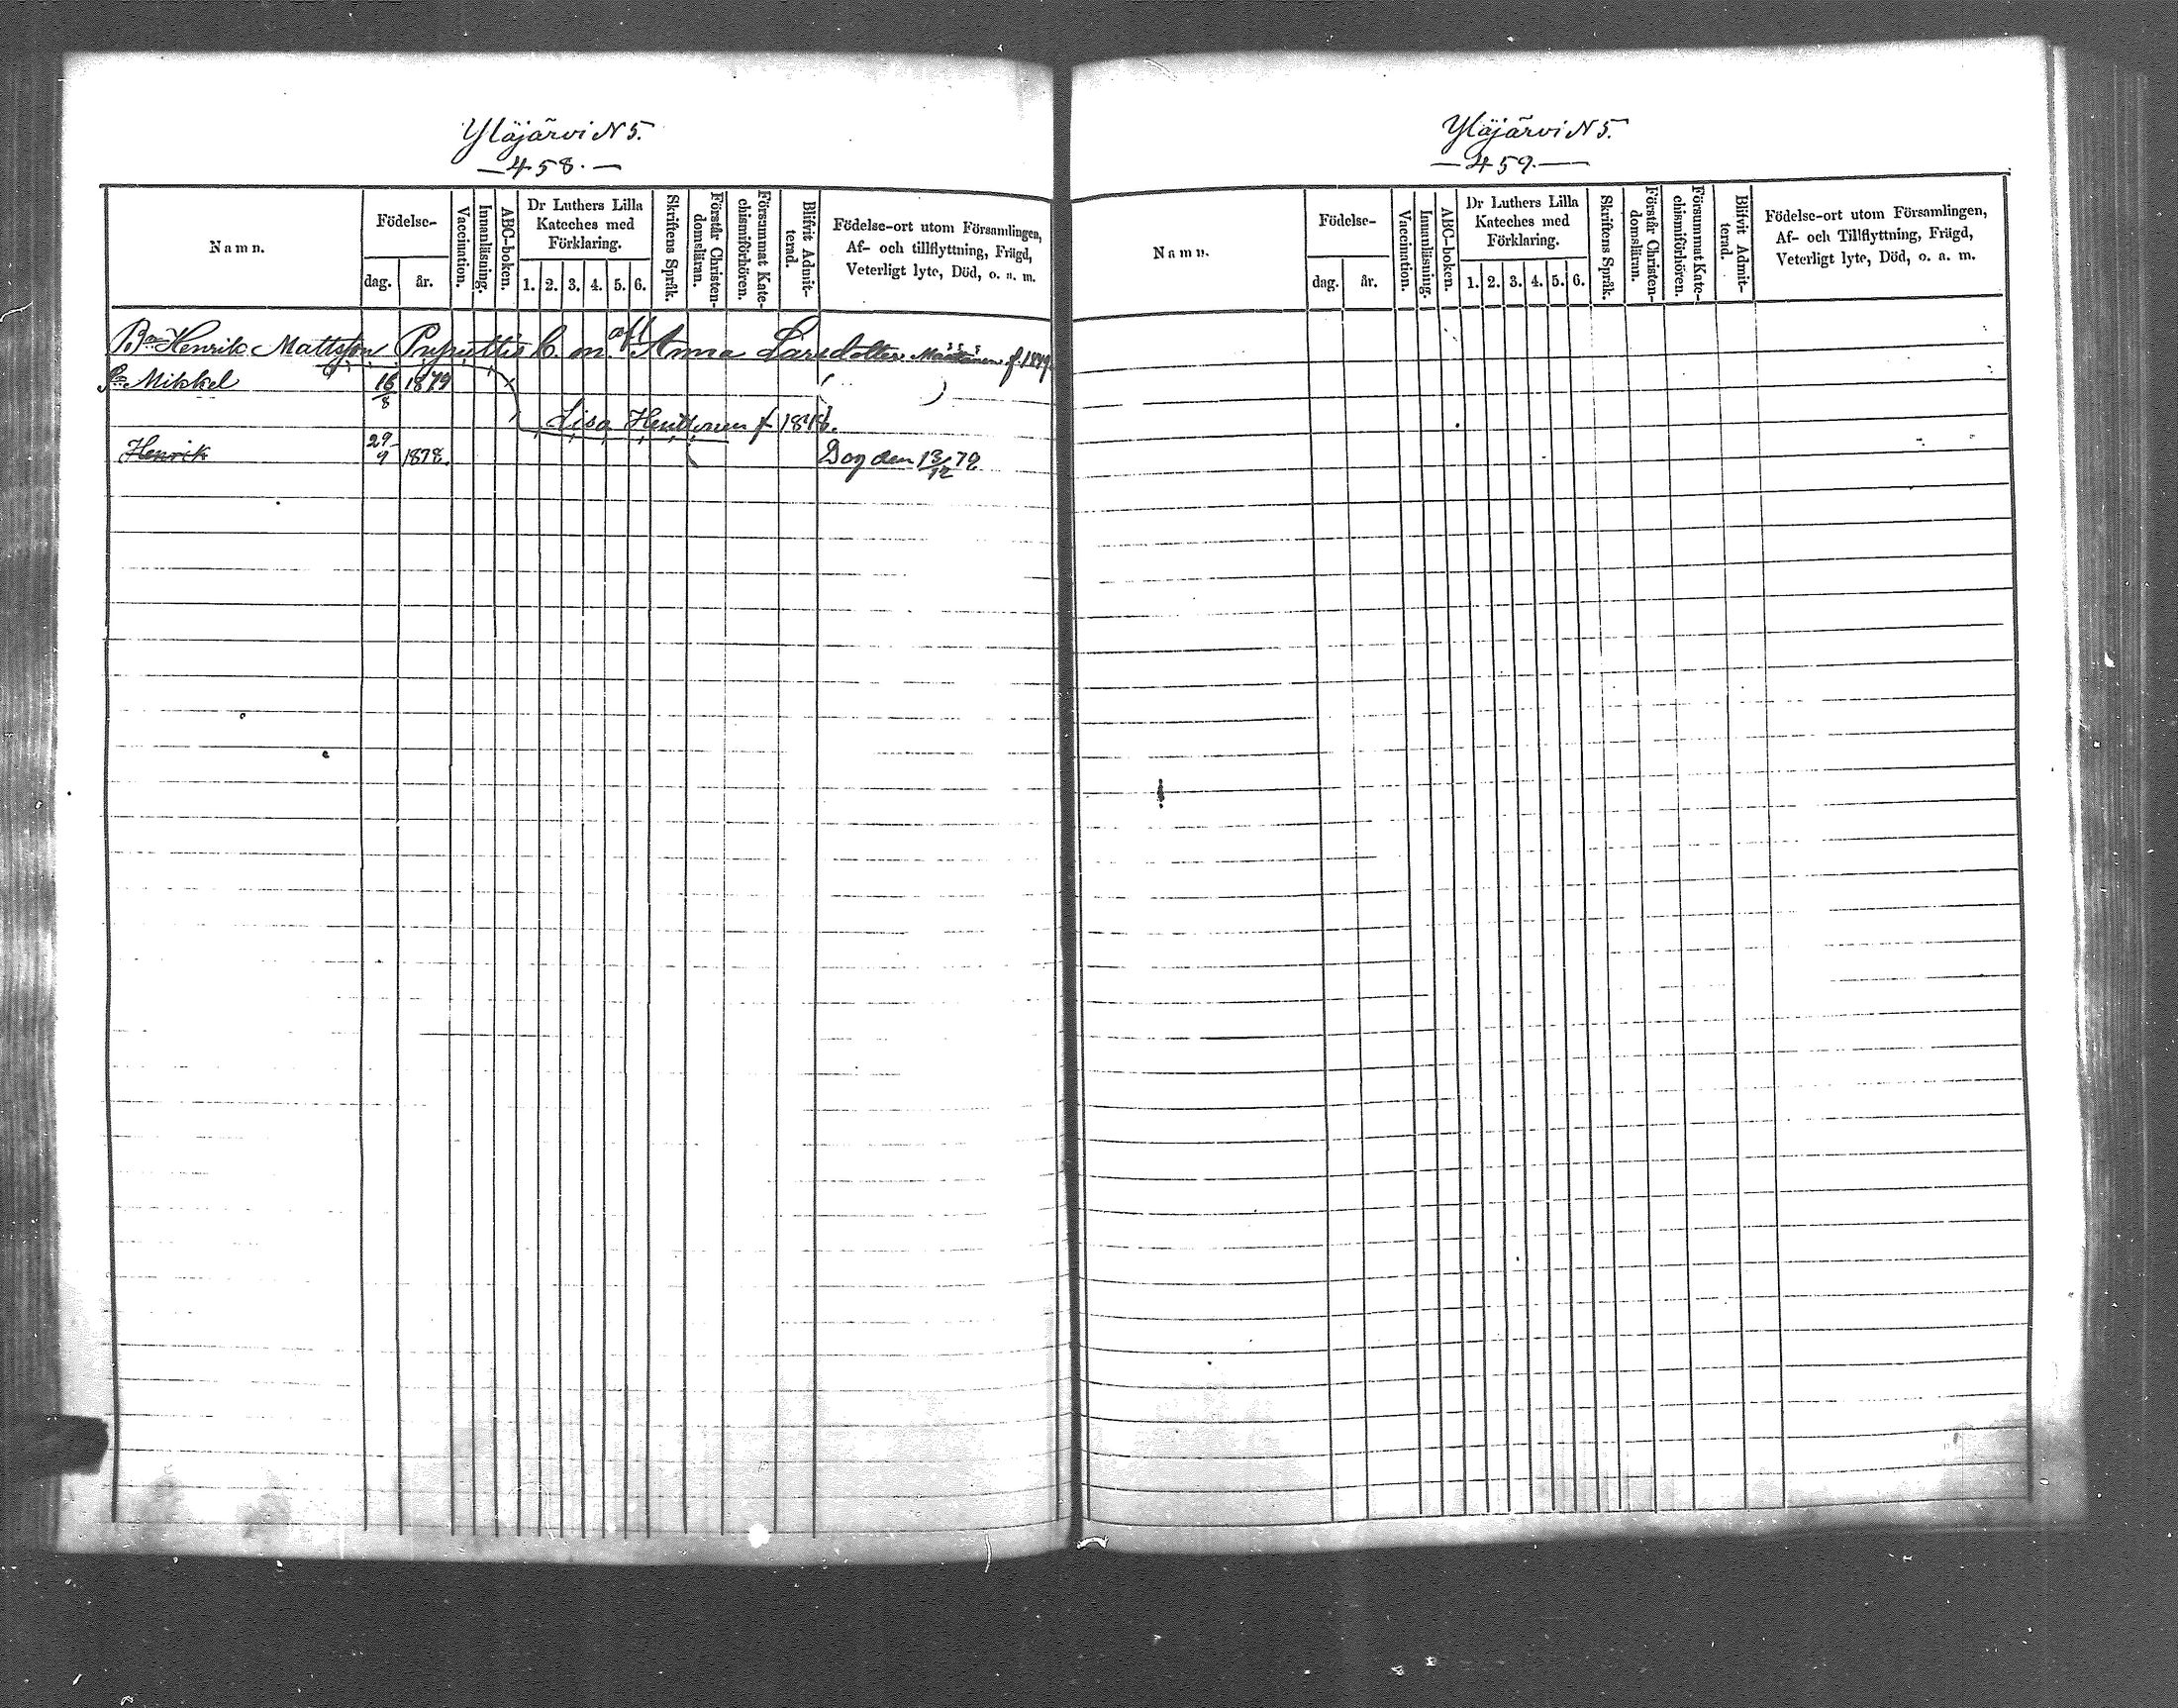 Yläjärvi N 5.
— 458. —
Namn.
Födelse-
dag.
år.
Vaccination.
Innanläsning.
ABC-boken.
Dr Luthers Lilla
Kateches med
Förklaring.
1. 2. 3. 4. 5. 6.
Skriftens Språk.
Förstår Christen-
domsläran.
Försummat Kate-
chismiförhören.
Blifvit Admit-
terad.
Födelse-ort utom Församlingen,
Af- och tillflyttning, Frägd,
Veterligt lyte, Död, o. a. m.
Henrik Mattsson B. m. Anna Larsdotter Määttänen f.
Mikkel 16/8 1879
Lisa Huttunen f 1848.
Henrik 29/9 1878. Dog den 13/12 79
Yläjärvi N 5.
— 459. —
Namn.
Födelse-
dag.
år.
Vaccination.
Innanläsning.
ABC-boken.
Dr Luthers Lilla
Kateches med
Förklaring.
1. 2. 3. 4. 5. 6.
Skriftens Språk.
Förstår Christen-
domsläran.
Försummat Kate-
chismiförhören.
Blifvit Admit-
terad.
Födelse-ort utom Församlingen,
Af- och Tillflyttning, Frägd,
Veterligt lyte, Död, o. a. m.